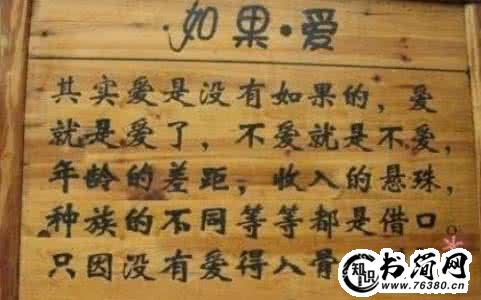 如果·爱
其实爱是没有如果的，爱
就是爱了，不爱就是不爱，
年龄的差距，收入的悬珠，
种族的不同等等都是借口。
只因没有爱得入骨
知识 书简网
www.76380.cn